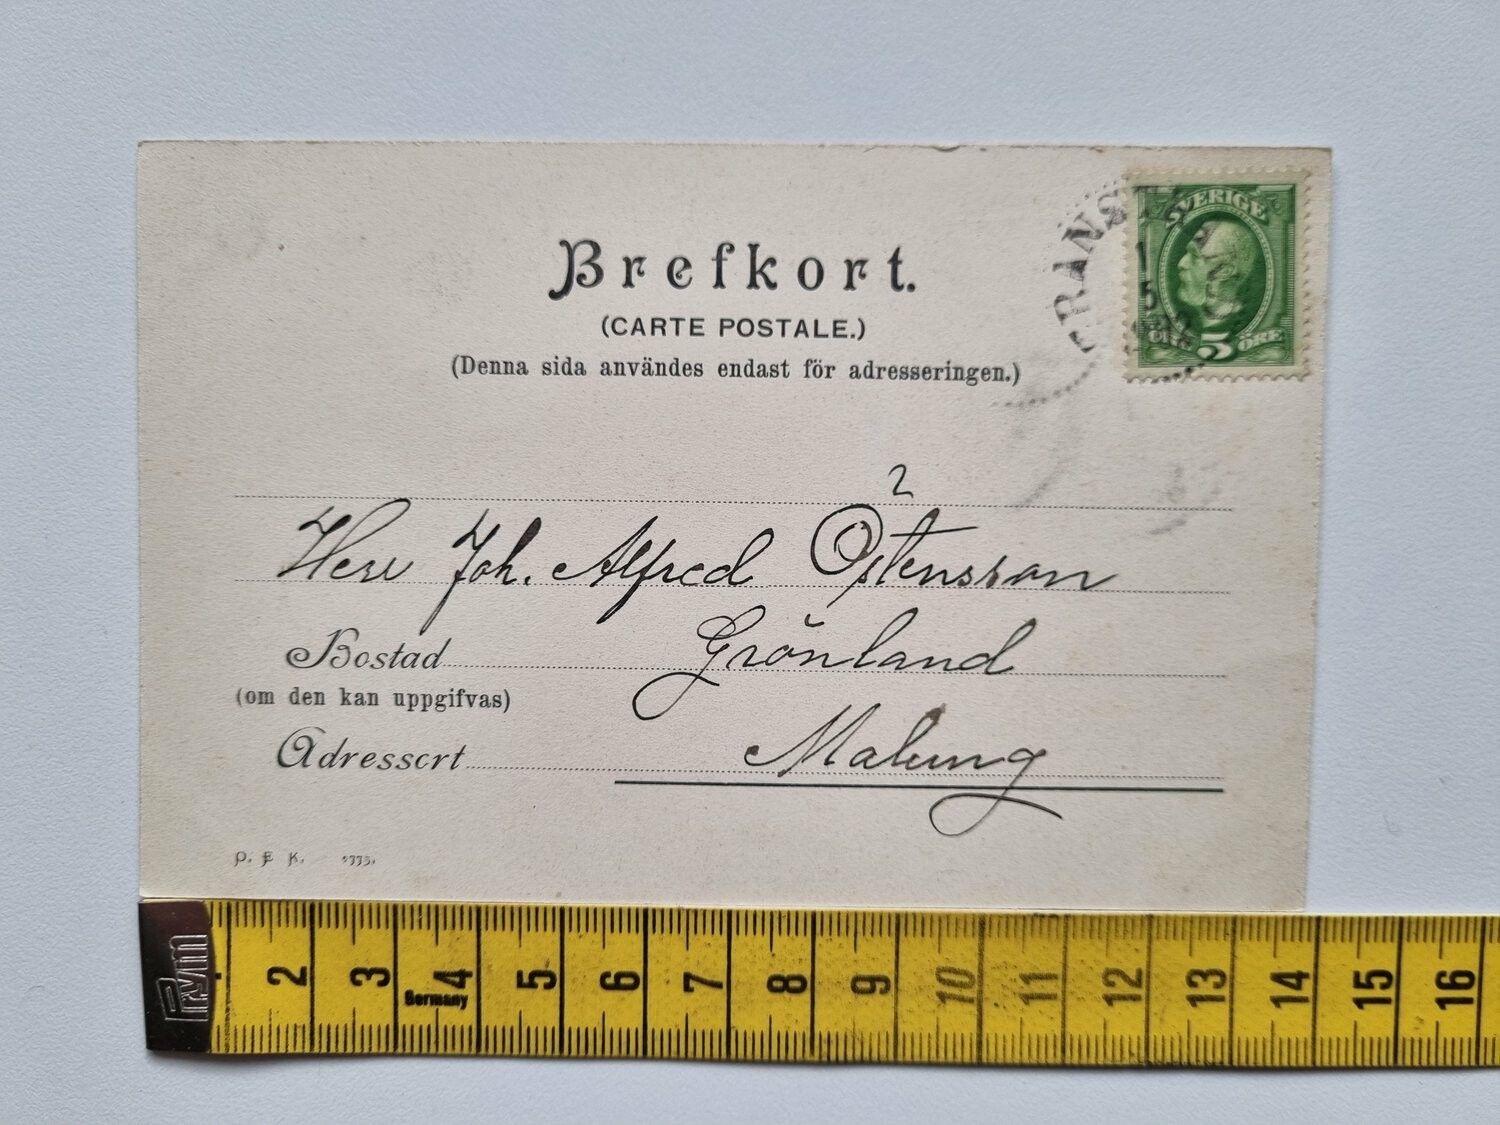 Brefkort.
(CARTE POSTALE.)
(Denna sida användes endast för adresseringen.)
SVERIGE
5 ÖRE
2
Herr Joh. Alfred Östensson
Bostad Grönland
(om den kan uppgifvas)
Adressort Malung
D. F. K.
Prym
2 3 4 5 6 7 8 9 10 11 12 13 14 15 16
Germany